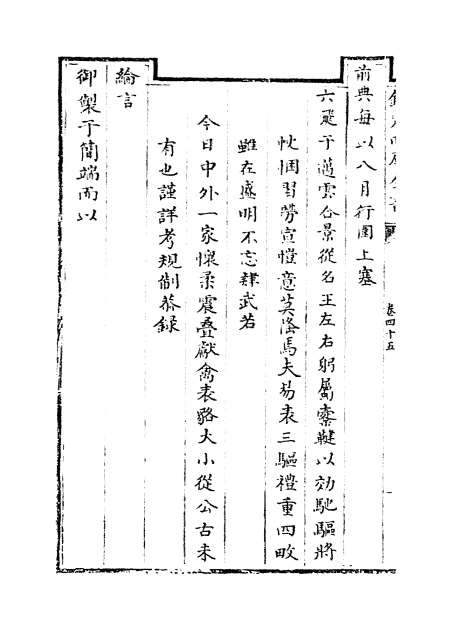 欽定四庫全書
卷四十五
前典每以八月行圍上塞
六飛于邁雲合景從名王左右躬屬櫜鞬以効馳驅將
忱悃習勞宣愷意莫隆焉夫易表三驅禮重四畋
雖在盛明不忘肄武若
今日中外一家懷柔震疊獻禽表貉大小從公古未
有也謹詳考規制恭錄
綸言
御製于簡端而以